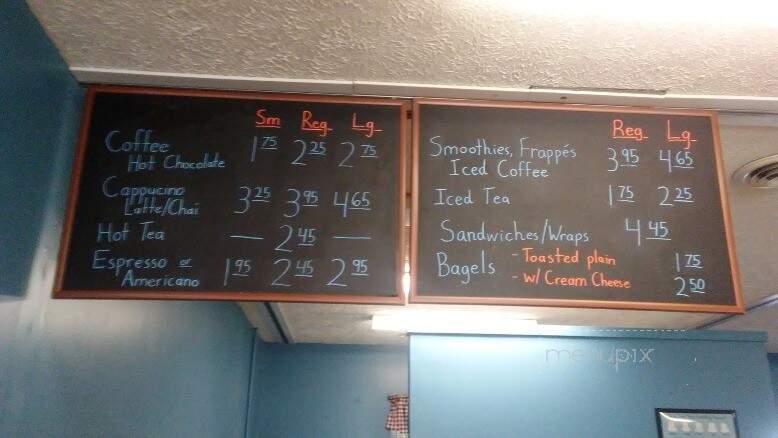 Sm Reg. Lg.
Coffee
Hot Chocolate 1 75 2 25 2 75
Cappucino
Latte/Chai 3 25 3 95 4 65
Hot Tea — 2 45 —
Espresso or
Americano 1 95 2 45 2 95
Reg. Lg.
Smoothies, Frappés
Iced Coffee 3 95 4 65
Iced Tea 1 75 2 25
Sandwiches/Wraps 4 45
Bagels - Toasted plain 1 75
- w/ Cream Cheese 2 50
menupix